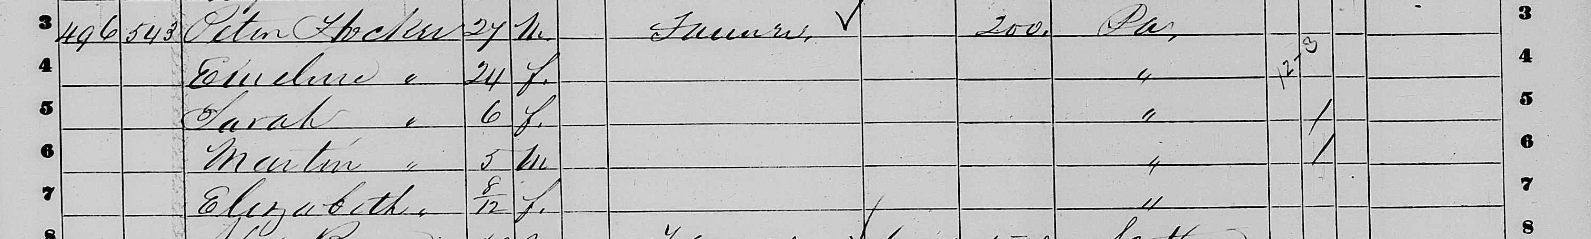 3 496 543 Peter Hocker 27 M. Farmer, ✓ 200. Pa, 3
4 Emeline " 24 f. " 12-3 4
5 Sarah " 6 f. " / 5
6 Martin " 5 M " / 6
7 Elizabeth " 8/12 f. " 7
8 8